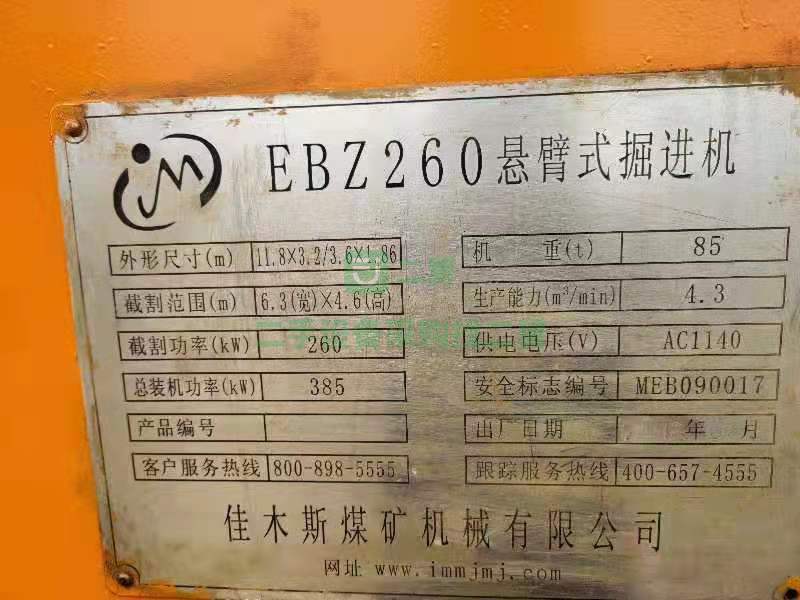 EBZ260悬臂式掘进机
外形尺寸(m) 11.8×3.2/3.6×1.86 机 重(t) 85
截割范围(m) 6.3(宽)×4.6(高) 生产能力(m³/min) 4.3
截割功率(kW) 260 供电电压(V) AC1140
总装机功率(kW) 385 安全标志编号 MEB090017
产品编号 出厂日期 年 月
客户服务热线 800-898-5555 跟踪服务热线 400-657-4555
佳木斯煤矿机械有限公司
网址 www.immjmj.com